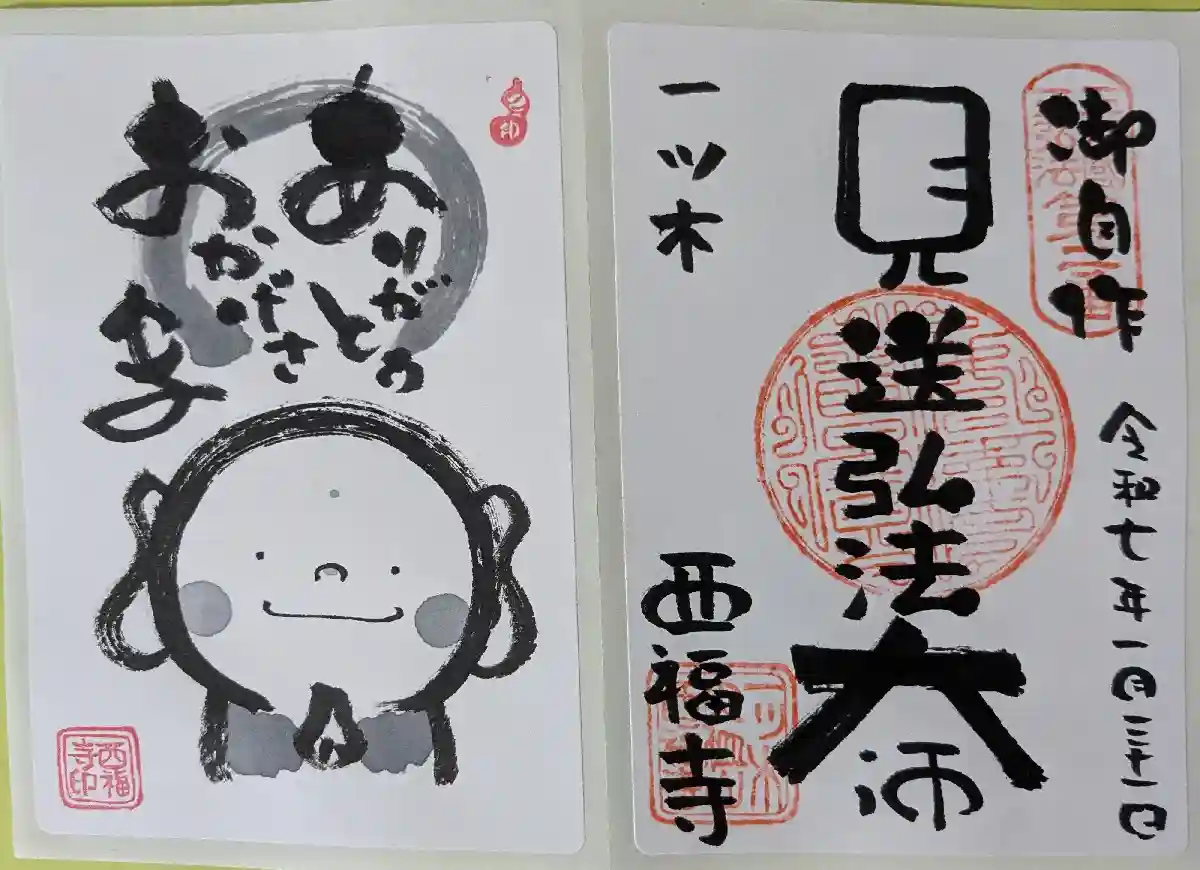 御自作
令和七年一月三十一日
見送弘法大師
一ツ木
西福寺
ありがとう
おかげさま
西福寺印